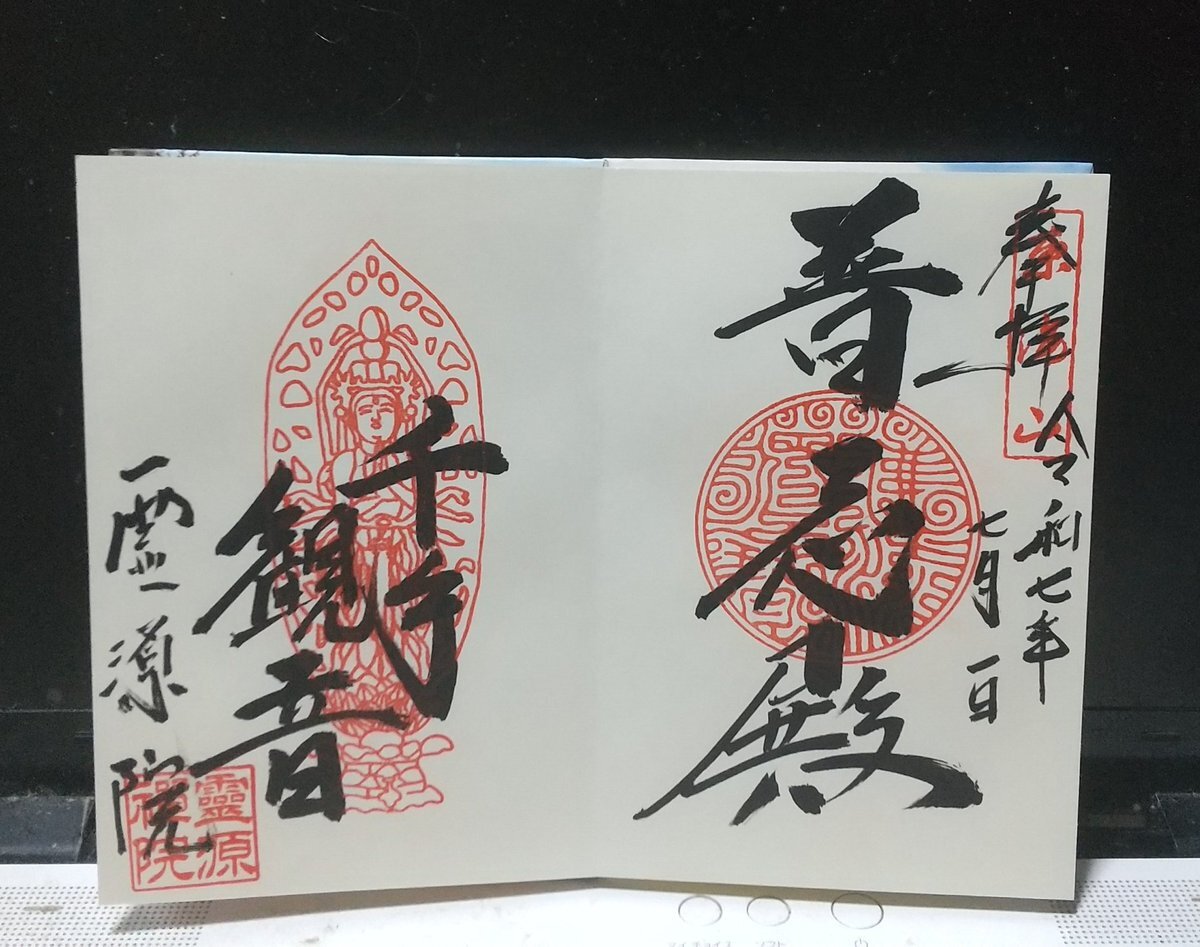 奉拝 令和七年
七月一日
普 殿
千手
観音
霊源院
靈源
禪院